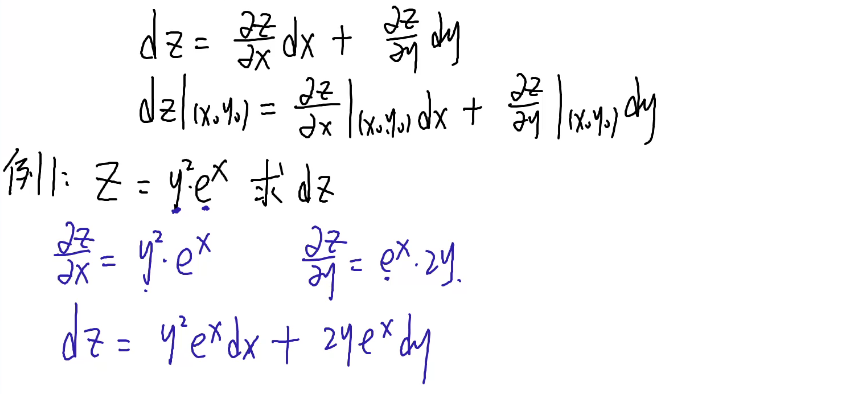 dz = ∂z/∂x dx + ∂z/∂y dy
dz|(x₀,y₀) = ∂z/∂x|(x₀,y₀) dx + ∂z/∂y|(x₀,y₀) dy
例1: z = y²·eˣ 求 dz
∂z/∂x = y²·eˣ ∂z/∂y = eˣ·2y.
dz = y²eˣdx + 2yeˣdy